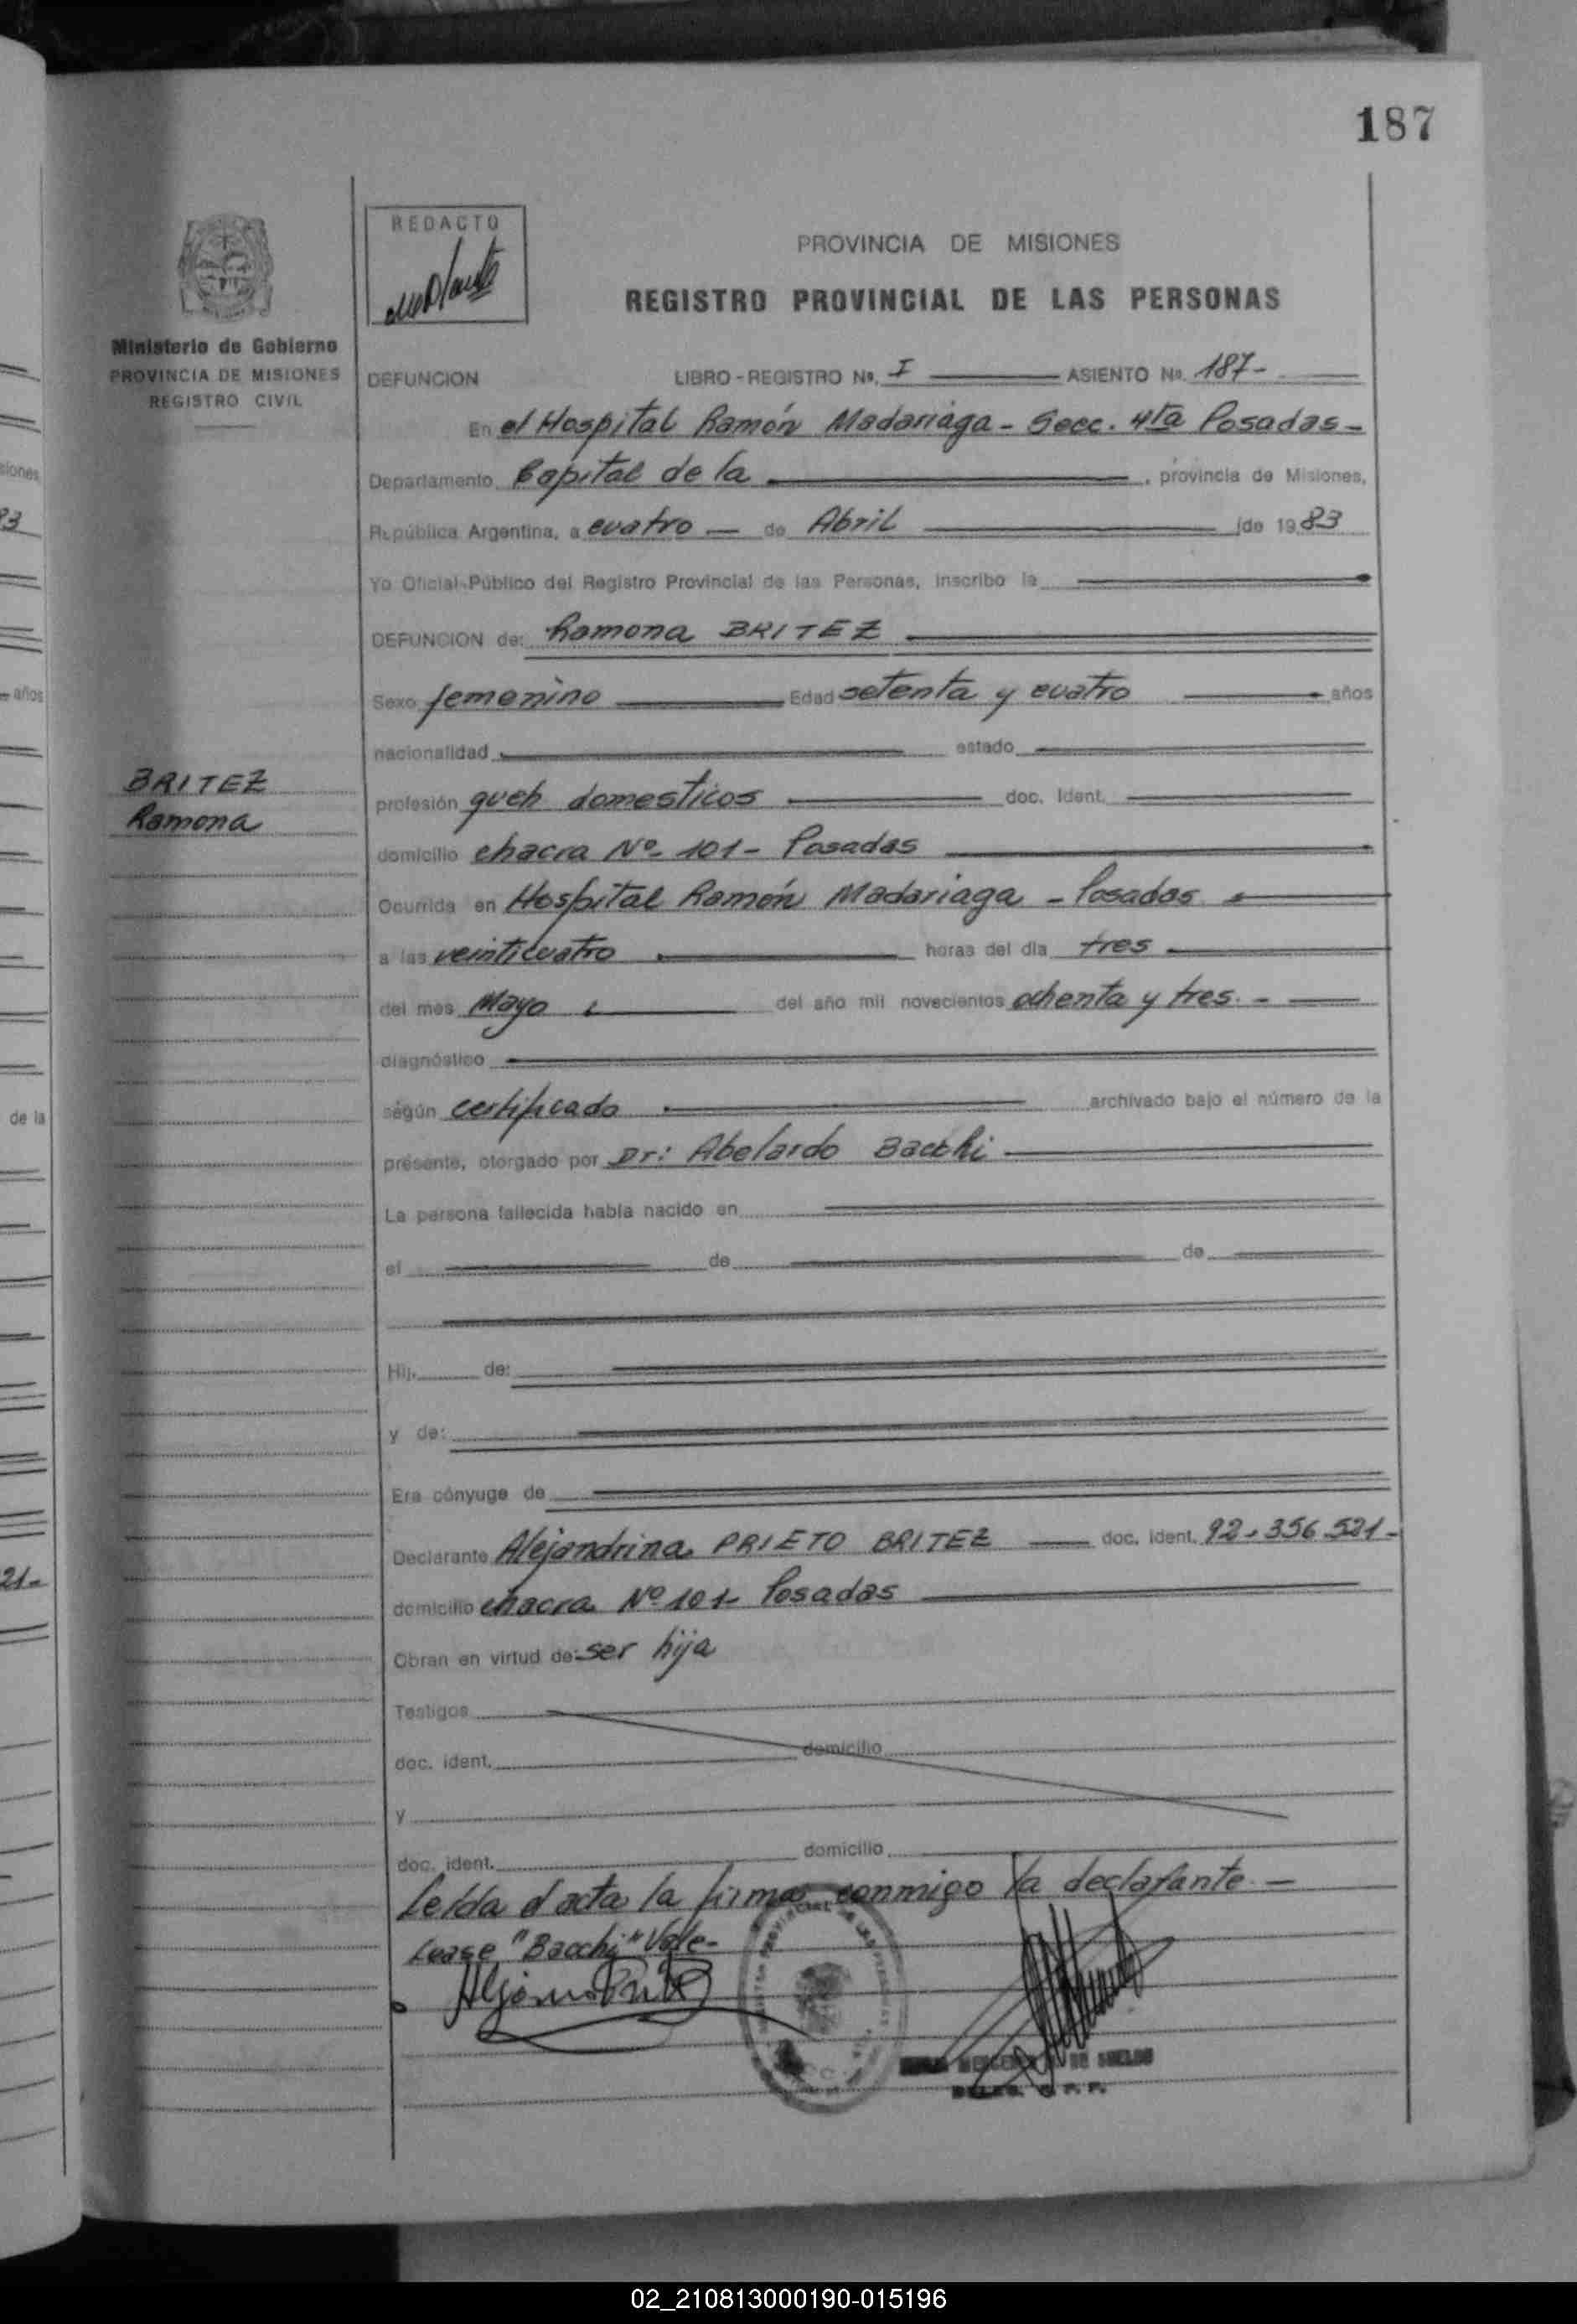 187
REDACTO
PROVINCIA DE MISIONES
REGISTRO PROVINCIAL DE LAS PERSONAS
Ministerio de Gobierno
PROVINCIA DE MISIONES
REGISTRO CIVIL
DEFUNCION LIBRO - REGISTRO Nº. I ASIENTO Nº. 187-
En el Hospital Ramón Madariaga - Secc. 4ta Posadas -
Departamento Capital de la , provincia de Misiones,
República Argentina, a cuatro — de Abril de 1983
Yo Oficial Público del Registro Provincial de las Personas, inscribo la
DEFUNCION de: Ramona BRITEZ
Sexo femenino Edad setenta y cuatro años
nacionalidad estado
BRITEZ
Ramona
profesión queh domesticos doc. Ident.
domicilio chacra Nº- 101- Posadas
Ocurrida en Hospital Ramón Madariaga - Posadas
a las veinticuatro horas del día tres
del mes Mayo del año mil novecientos ochenta y tres. -
diagnóstico
según certificado archivado bajo el número de la
presente, otorgado por Dr: Abelardo Bacchi
La persona fallecida había nacido en
el de de
Hij. de:
y de:
Era cónyuge de
Declarante Alejandrina PRIETO BRITEZ doc. ident. 92.356.521-
domicilio chacra Nº 101- Posadas
Obran en virtud de: ser hija
Testigos
doc. ident. domicilio
y
doc. ident. domicilio
Leida el acta la firma conmigo la declarante -
Lease "Bacchi" Vale-
siones
83
años
de la
21-
02_210813000190-015196